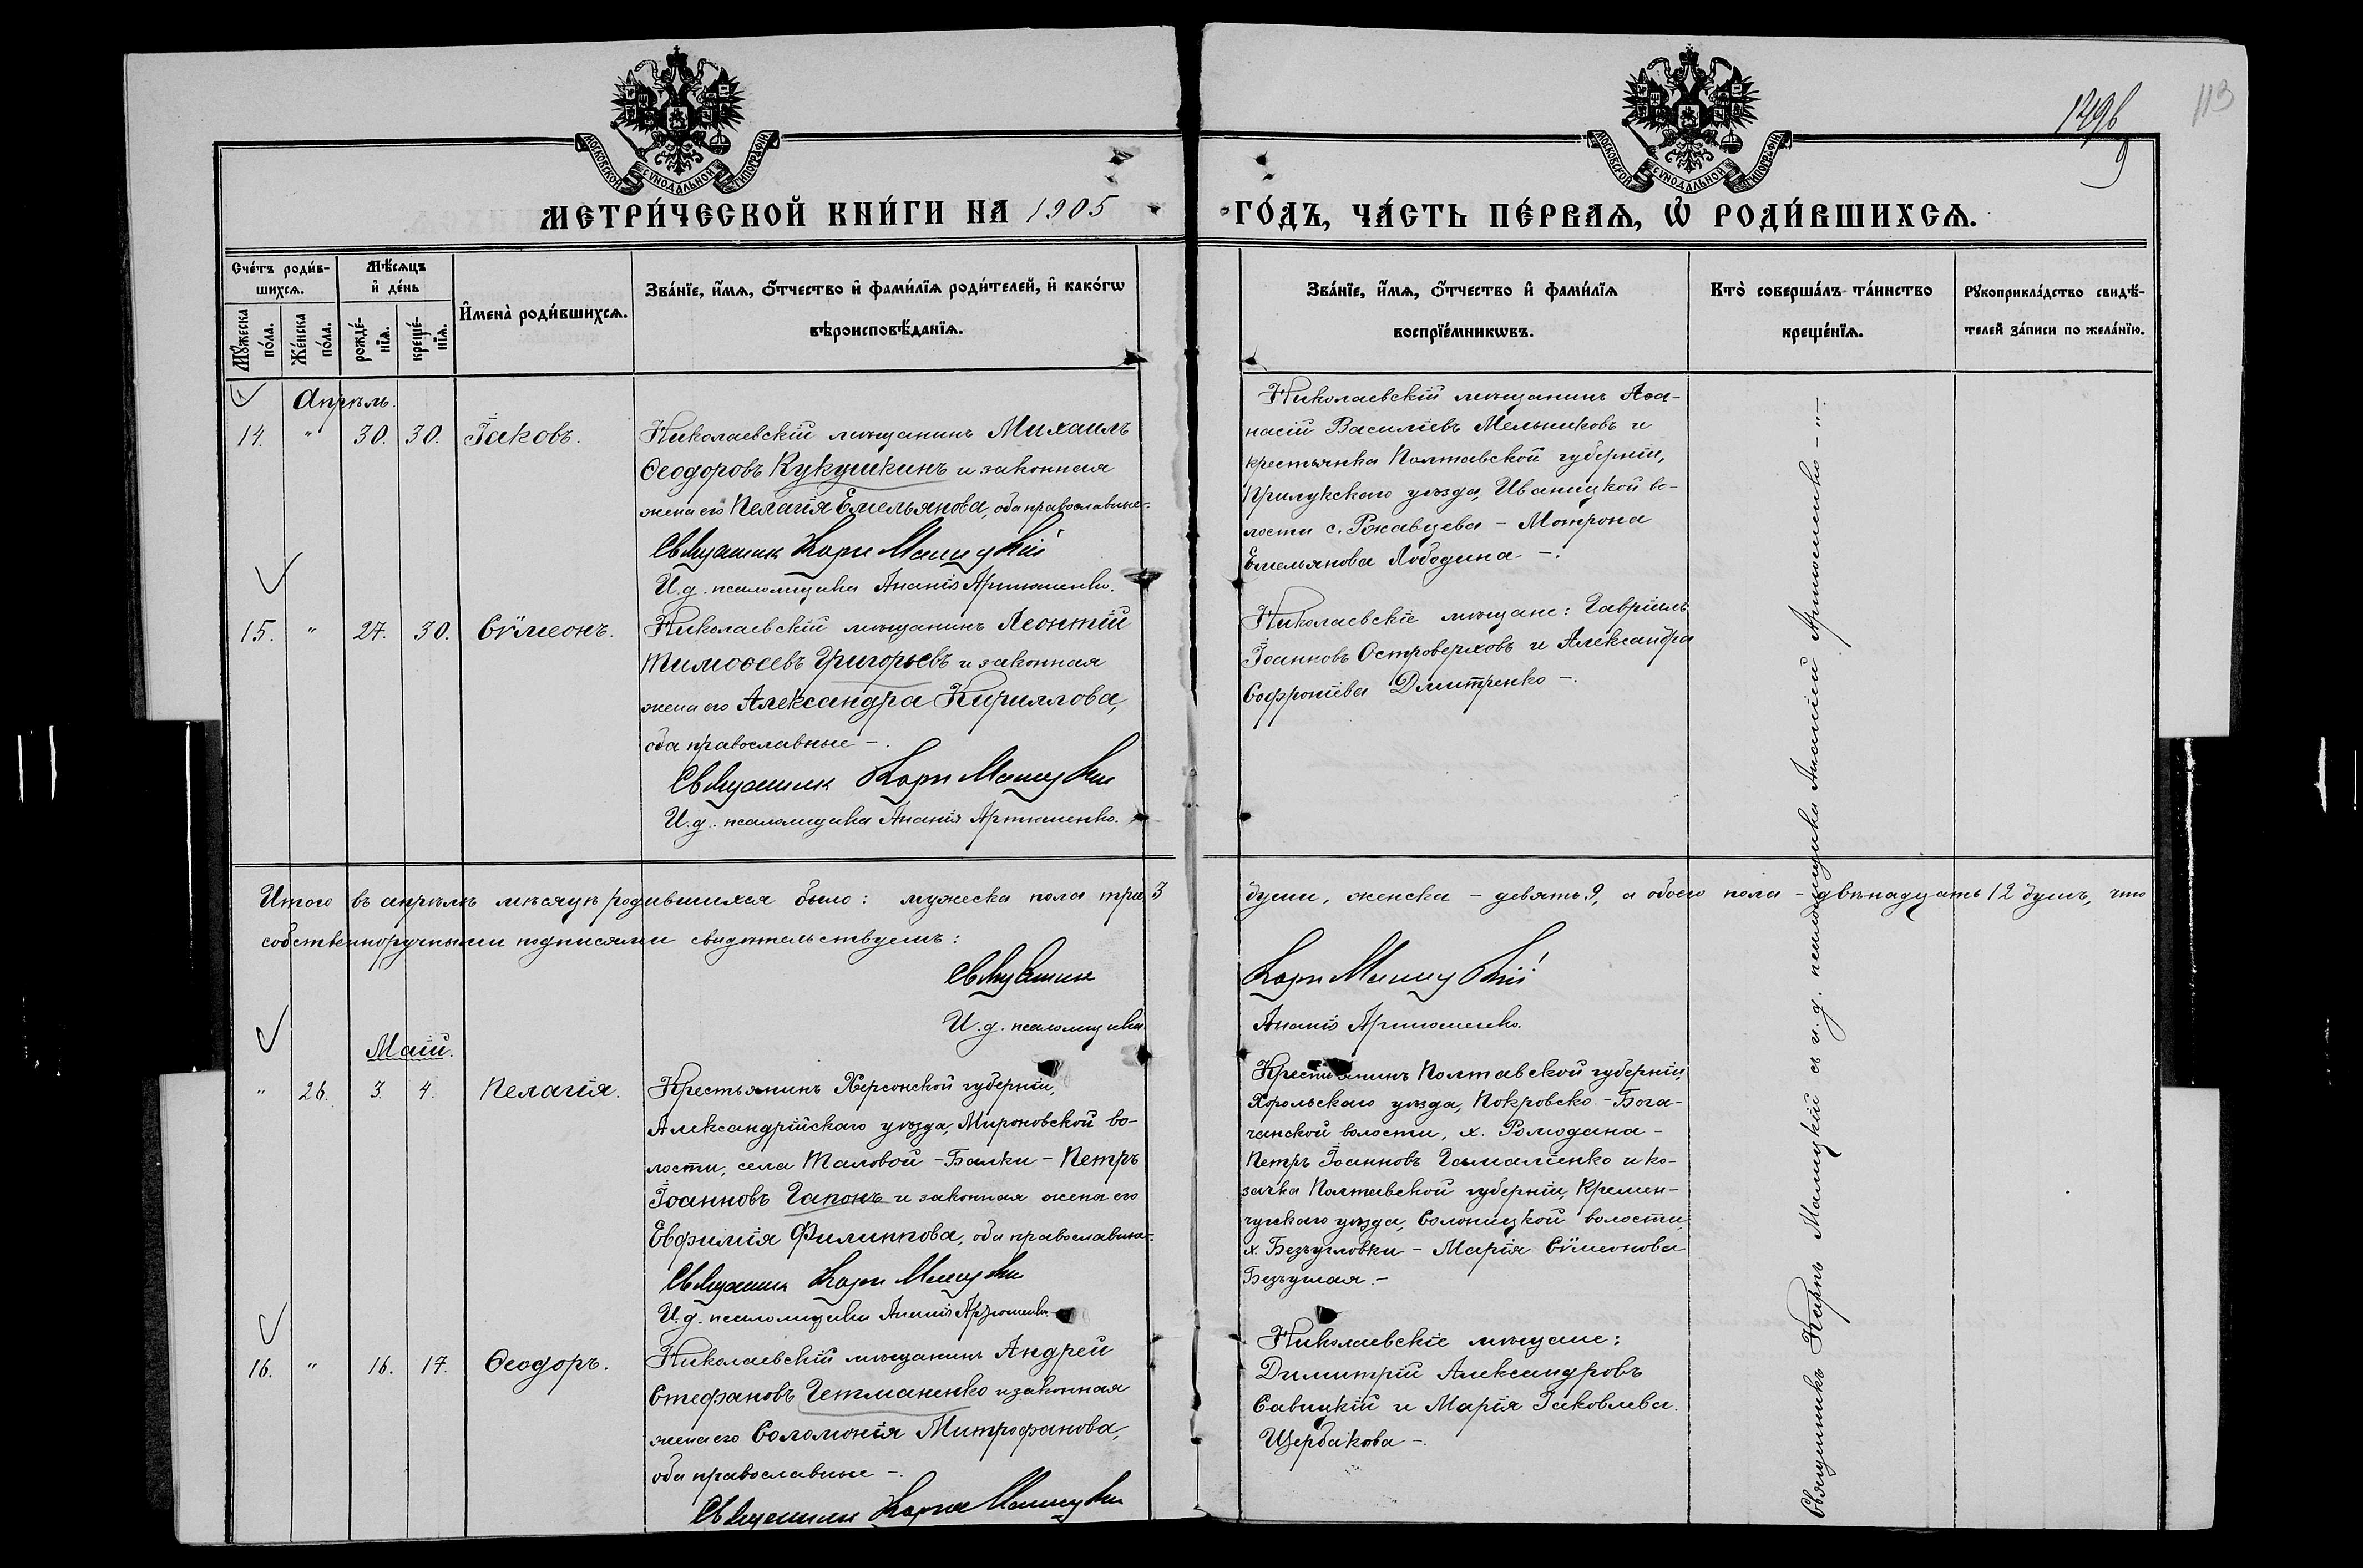 113
1296
МОСКОВСКОЙ СѴНОДАЛЬНОЙ ТИПОГРАФІИ
МОСКОВСКОЙ СѴНОДАЛЬНОЙ ТИПОГРАФІИ
МЕТРИ́ЧЕСКОЙ КНИ́ГИ НА 1905
ГО́ДЪ, ЧА́СТЬ ПЕ́РВАѦ, Ѡ҆ РОДИ́ВШИХСѦ.
Сче́тъ роди́в-
шихсѧ.
Мѣ́сѧцъ
и҆ де́нь
И҆мена̀ роди́вшихсѧ.
Зва́нїе, и҆́мѧ, ѻ҆́тчество и҆ фами́лїѧ роди́телей, и҆ како́гѡ
вѣроисповѣ́данїѧ.
Мꙋ́жеска
по́ла.
Же́нска
по́ла.
рожде́-
нїѧ.
креще́-
нїѧ.
Зва́нїе, и҆́мѧ, ѻ҆́тчество и҆ фами́лїѧ
воспрїе́мникѡвъ.
Кто̀ соверша́лъ та́инство
креще́нїѧ.
Рꙋкоприкла́дство свидѣ́-
телей за́писи по жела́нїю.
Апрѣль.
14. " 30. 30. Іаковъ.
Николаевскій мѣщанинъ Михаилъ
Ѳеодоровъ Кукушкинъ и законная
жена его Пелагія Емельянова, оба православные.
Священник Карп Малицкій
И.д. псаломщика Ананій Артюшенко.
Николаевскій мѣщанинъ Аѳа-
насій Василіевъ Мельниковъ и
крестьянка Полтавской губерніи,
Прилукскаго уѣзда, Иваницкой во-
лости с. Ржавцева - Мотрона
Емельянова Лободина -.
15. " 27. 30. Сѵмеонъ.
Николаевскій мѣщанинъ Леонтій
Тимоѳеевъ Григорьевъ и законная
жена его Александра Кириллова,
оба православные -.
Священник Карп Малицкій
И.д. псаломщика Ананій Артюшенко.
Николаевскіе мѣщане: Гавріилъ
Іоанновъ Островерховъ и Александра
Софроніева Дмитренко -.
Итого въ апрѣлѣ мѣсяцѣ родившихся было: мужеска пола три 3 души, женска - девять 9, а обоего пола - двѣнадцать 12 душъ, что
собственноручными подписями свидѣтельствуемъ:
Священник Карп Малицкій
И.д. псаломщика Ананій Артюшенко.
Маій.
" 26. 3. 4. Пелагія.
Крестьянинъ Херсонской губерніи,
Александрійскаго уѣзда, Мироновской во-
лости, села Таловой-Балки - Петръ
Іоанновъ Гапонъ и законная жена его
Евфимія Филиппова, оба православные.
Священник Карп Малицкій
И.д. псаломщика Ананій Артюшенко.
Крестьянинъ Полтавской губерніи,
Хорольскаго уѣзда, Покровско-Бога-
чанской волости, х. Ромодана -
Петръ Іоанновъ Гамаліенко и ко-
зачка Полтавской губерніи, Кремен-
чугскаго уѣзда, Солоницкой волости,
х. Безъугловки - Марія Сѵмеонова
Безъуглая.-
16. " 16. 17. Ѳеодоръ.
Николаевскій мѣщанинъ Андрей
Стефановъ Гетманенко и законная
жена его Соломонія Митрофанова,
оба православные -.
Священник Карп Малицкій
Николаевскіе мѣщане:
Димитрій Александровъ
Савицкій и Марія Іаковлева
Щербакова -.
Священникъ Карпъ Малицкій съ и.д. псаломщика Ананіемъ Артюшенко